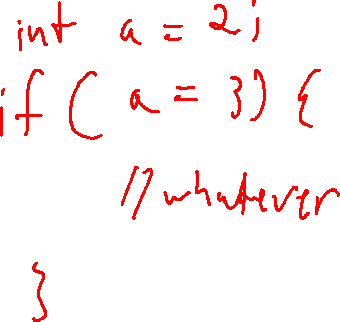 int a = 2;
if ( a = 3) {
//whatever
}